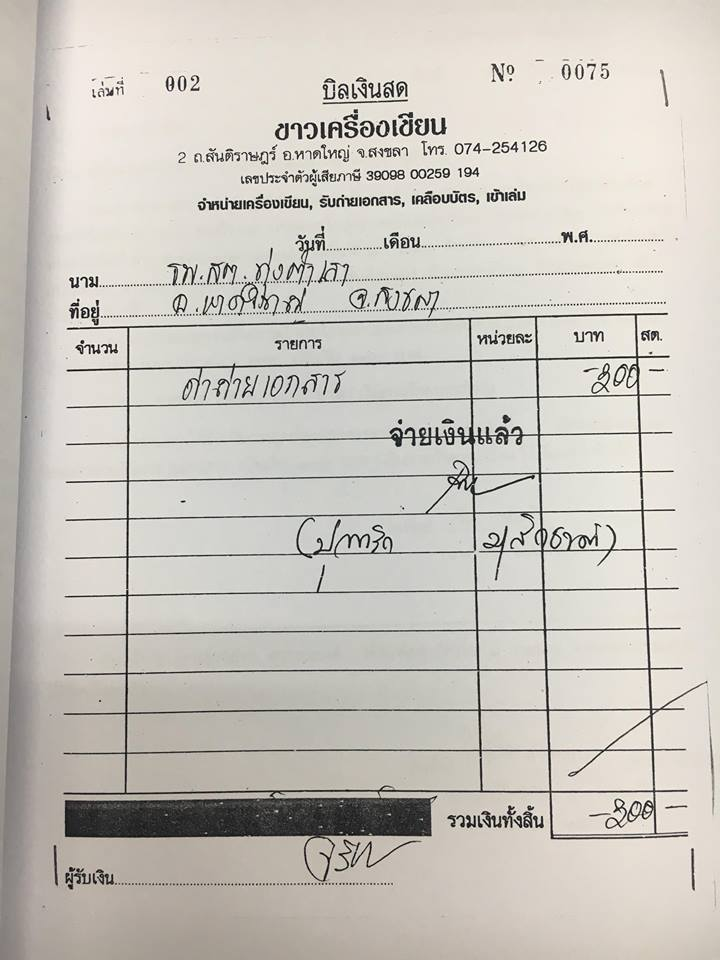 เล่มที่ 002
Nº 0075
บิลเงินสด
ขาวเครื่องเขียน
2 ถ.สันติราษฎร์ อ.หาดใหญ่ จ.สงขลา โทร. 074-254126
เลขประจำตัวผู้เสียภาษี 39098 00259 194
จำหน่ายเครื่องเขียน, รับถ่ายเอกสาร, เคลือบบัตร, เข้าเล่ม
วันที่ เดือน พ.ศ.
นาม รพ.สต. ทุ่งตำเสา
ที่อยู่ อ.หาดใหญ่ จ.สงขลา
จำนวน รายการ หน่วยละ บาท สต.
ค่าถ่ายเอกสาร -200 -
จ่ายเงินแล้ว
รวมเงินทั้งสิ้น -200 -
ผู้รับเงิน